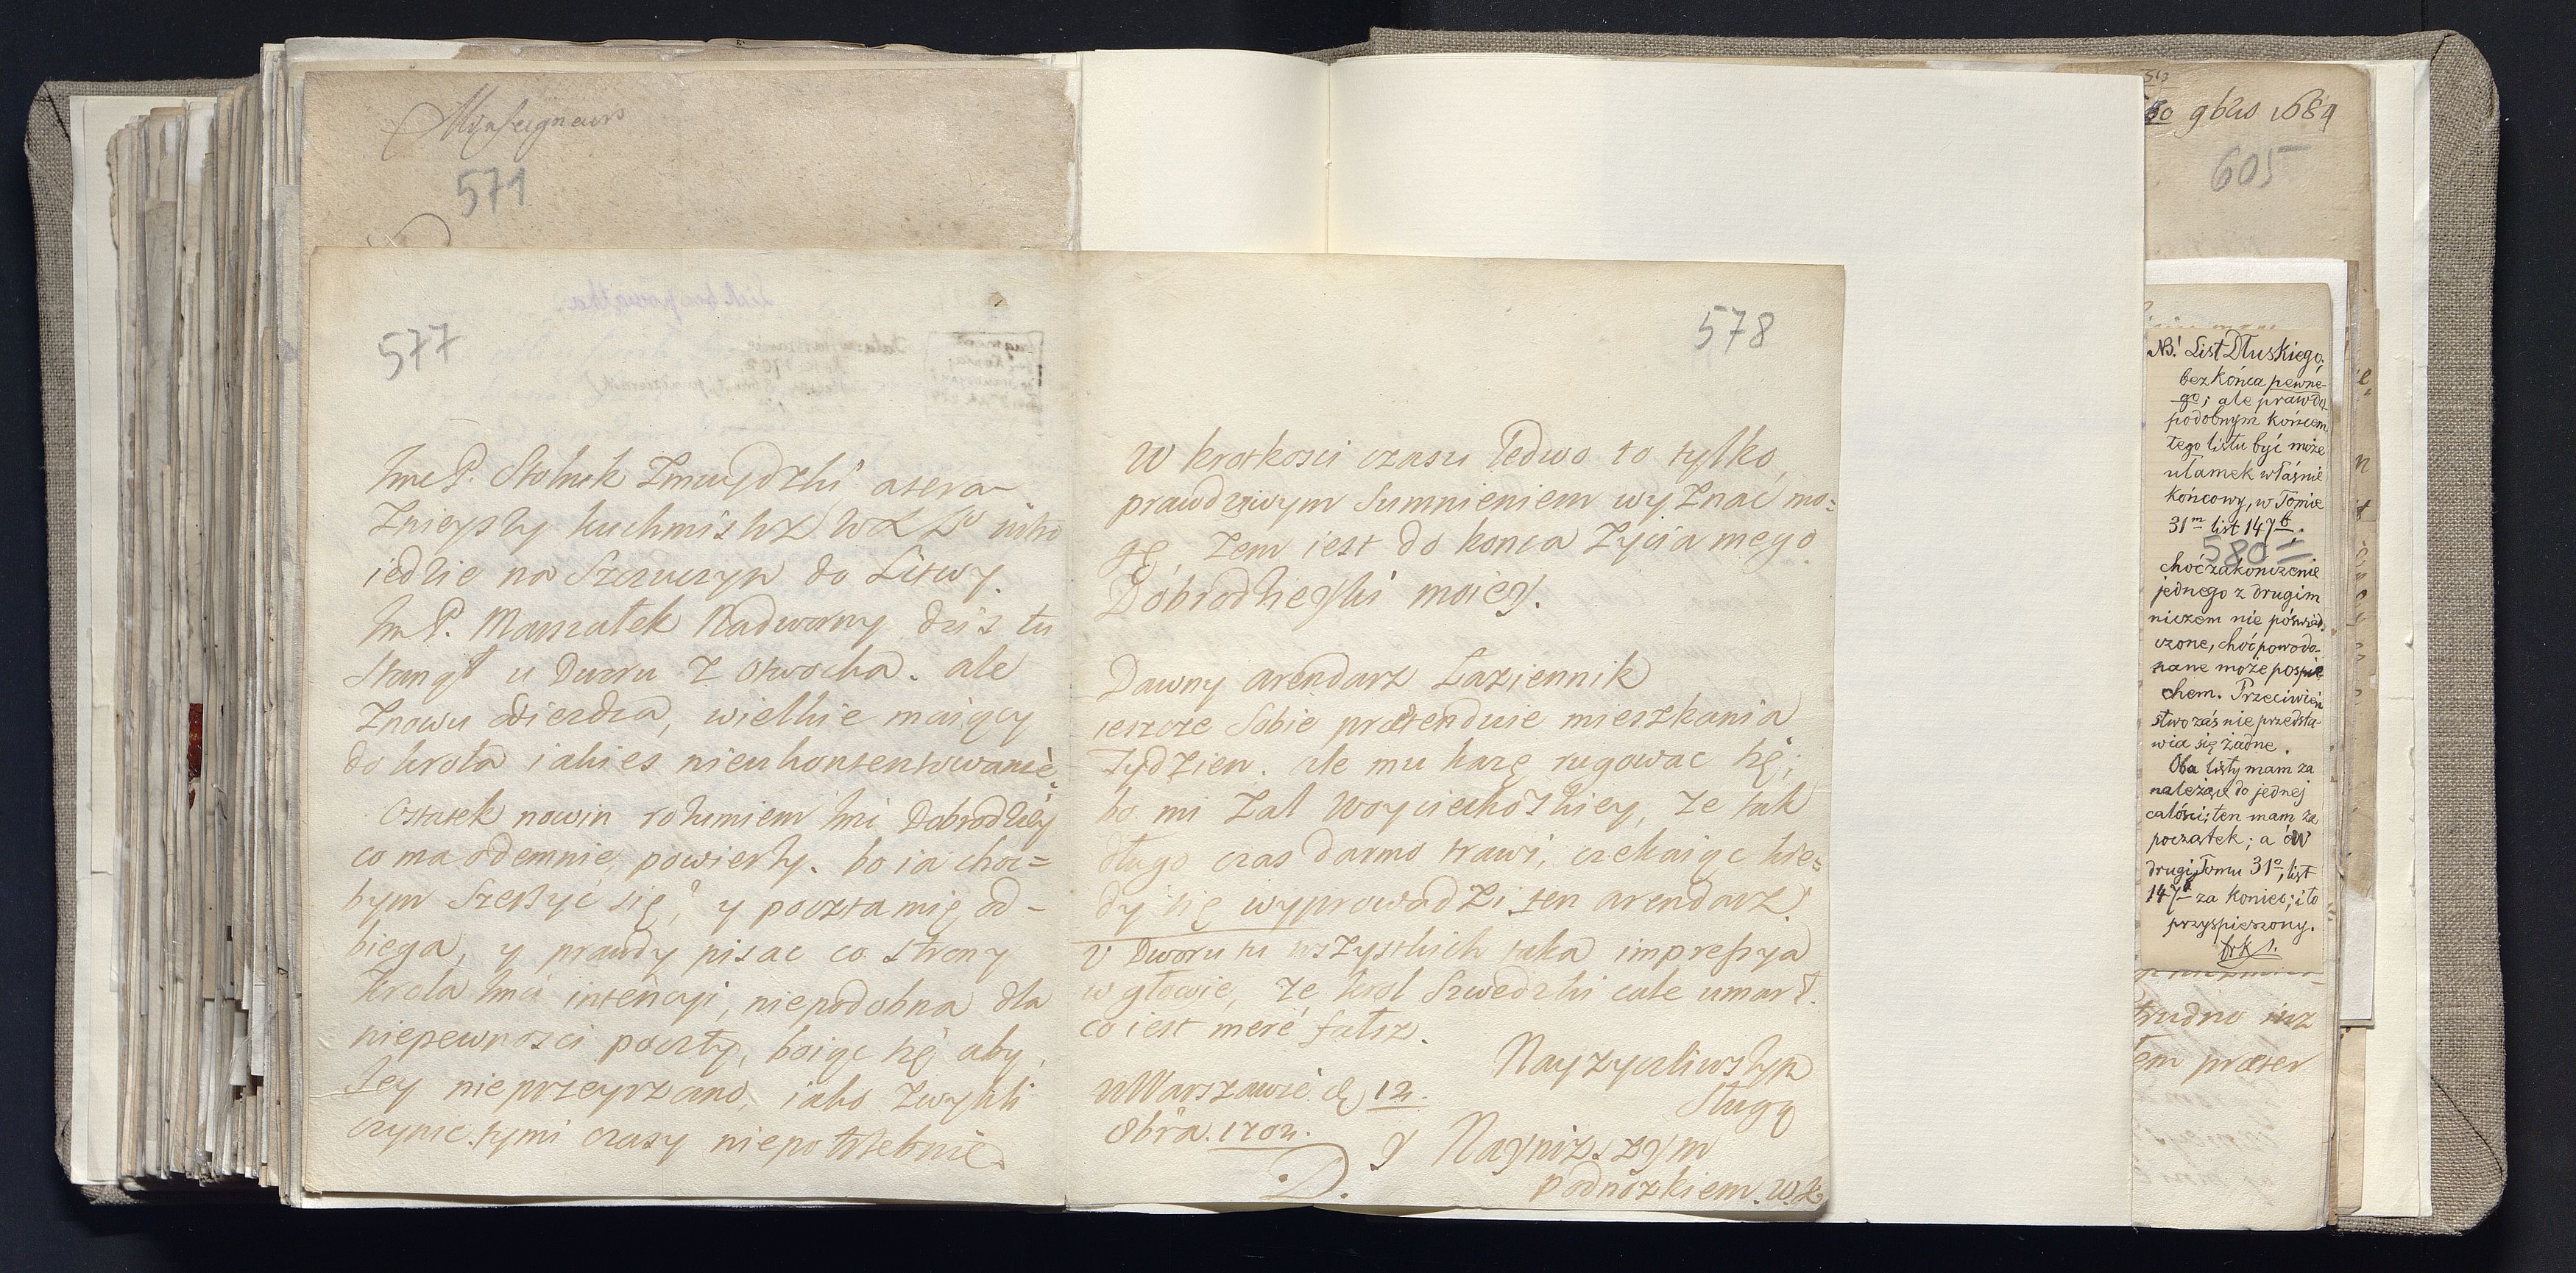 Monseigneur
571
577
Jmc P. Stolnik Zmuydzki a tera-
Znieyszy kuchmistrz W X L° iutro
iedzie na Szczuczyn do Litwy.
Jm P. Marszałek Nadworny dzis tu
stanął u Dworu z Otwocka. ale
znowu odiezdza, wielkie maiący
do krola iakies nieukontentowanie.
Ostatek nowin rozumiem Jmci Dobrodziey
co ma odemnie, powierzy. bo ia choc=
bym szerzyć się, y poczta mię od-
biega, y prawdy pisac co strony
Krola Jmci intencyi, niepodobna dla
niepewnosci poczty, boiąc się aby
Jey nieprzeyrzano, iako zwykli
czynic tymi czasy niepotrzebnie.
578
W krotkosci czasu ledwo to tylko
prawdziwym sumnieniem wyznać mo=
gę, zem iest do konca zycia mego
Dobrodzieyki moiey.
Dawny arendarz Łaziennik
ieszcze sobie prætenduie mieszkania
tydzien. ale mu karzę rugowac się;
bo mi zal Woyciechoskiey, ze tak
długo czas darmo trawi, czekaiąc kie=
dy się wyprowadzi ten arendarz.
U Dworu tu wszystkich taka impressya
w głowie, ze krol Szwedzki cale umarł.
co iest meré fałsz.
Nayzyczliwszym
Sługą
w Warszawie d. 12.
8bra. 1702.
y Naynizszym
podnożkiem. W. X.
D.
513
30 9bris 1684
605
NB! List Dłuskiego,
bez końca pewne-
go; ale prawdo
podobnym końcem
tego listu być może
ułamek właśnie
końcowy, w Tomie
31m list 147b.
580
choć zakończenie
jednego z drugim
niczem nie poświad
czone, choć powodo-
wane może pospie
chem. Przeciwień
stwo zaś nie przedsta-
wia się żadne.
Oba listy mam za
należące do jednej
całości; ten mam za
początek; a ów
drugi, Tomu 31o, list
147b za koniec; i to
przyspieszony.
trudno iuz
em præter